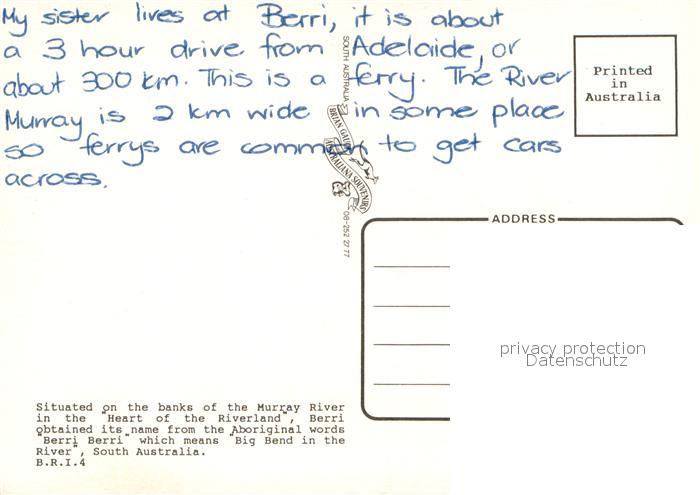 My sister lives at Berri, it is about
a 3 hour drive from Adelaide, or
about 300 km. This is a ferry. The River
Murray is 2 km wide in some place
so ferrys are common to get cars
across.
Printed
in
Australia
SOUTH AUSTRALIA
AUSTRALIANA SOUVENIRS
08-252 2777
ADDRESS
privacy protection
Datenschutz
Situated on the banks of the Murray River
in the "Heart of the Riverland", Berri
obtained its name from the Aboriginal words
"Berri Berri" which means "Big Bend in the
River", South Australia.
B.R.I.4